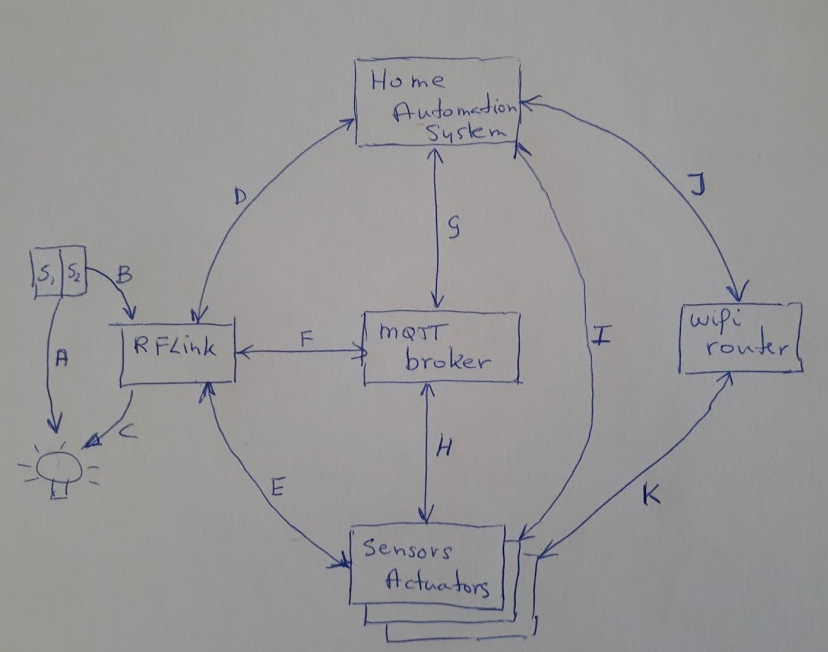 Home
Automation
System
D
J
G
S1 S2
B
RFLink
F
MQTT
broker
I
Wifi
router
A
C
H
E
K
Sensors
Actuators